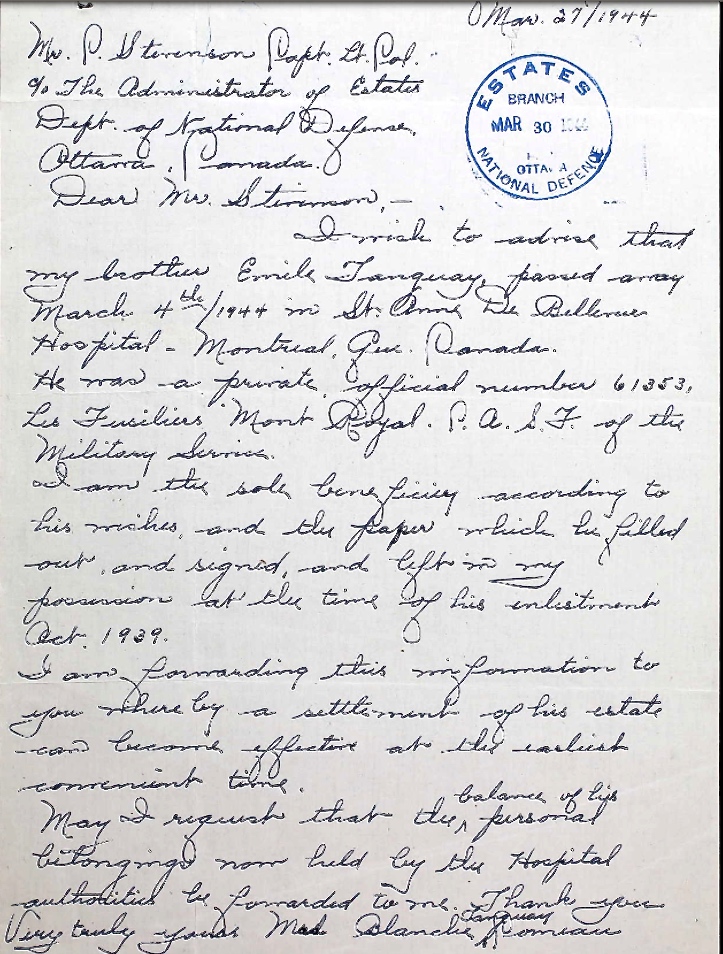 Mar. 27/1944
Mr. P. Stevenson Capt. Lt. Col.
℅ The Administrator of Estates
Dept. of National Defense,
Ottawa, Canada.
ESTATES
BRANCH
MAR 30
OTTAWA
NATIONAL DEFENCE
Dear Mr. Stevenson,-
I wish to advise that
my brother Emile Tanquay, passed away
March 4th/1944 in St. Anne De Bellevue
Hospital - Montreal, Que. Canada.
He was a private, official number 61353,
Les Fusiliers Mont Royal. P. A. S. F. of the
Military Service.
I am the sole beneficiey according to
his wishes, and the paper which he filled
out, and signed, and left in my
possession at the time of his enlistment
Oct. 1939.
I am forwarding this information to
you whereby a settlement of his estate
can become effective at the earliest
convenient time.
May I request that the balance of his personal
belongings now held by the Hospital
authorities be forwarded to me. Thank you
Very truly yours Mrs Blanche Tanquay Comeau